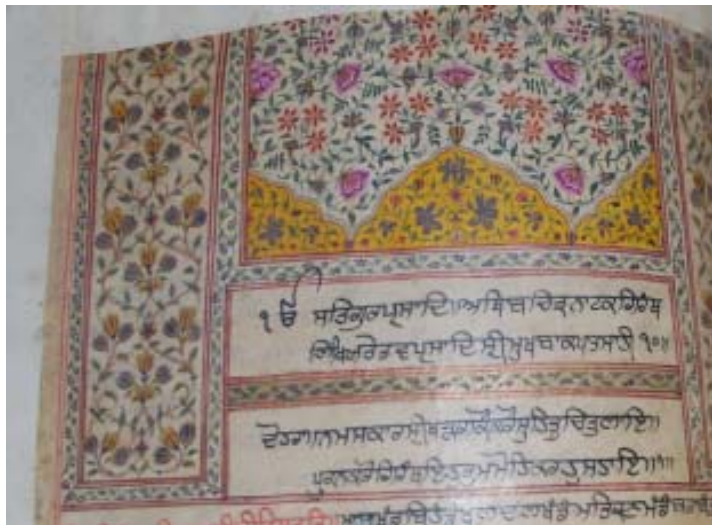 ੴ ਸਤਿਗੁਰਪ੍ਰਸਾਦਿ॥ਅਥਬਚਿਤ੍ਰਨਾਟਕਗਿਰੰਥ
ਤ੍ਵਪ੍ਰਸਾਦਿ ਸ੍ਰੀਮੁਖਬਾਕਪਾਤਸਾਹੀ ੧੦॥
ਦੋਹਰਾ॥ਨਮਸਕਾਰਸ੍ਰੀਖੜਗਕੋਕਰੌਸੁਹਿਤੁਚਿਤੁਲਾਇ॥
ਪੂਰਨਕਰੌਗਿਰੰਥਇਹੁਤੁਮਮੋਹਿਕਰਹੁਸਹਾਇ॥੧॥